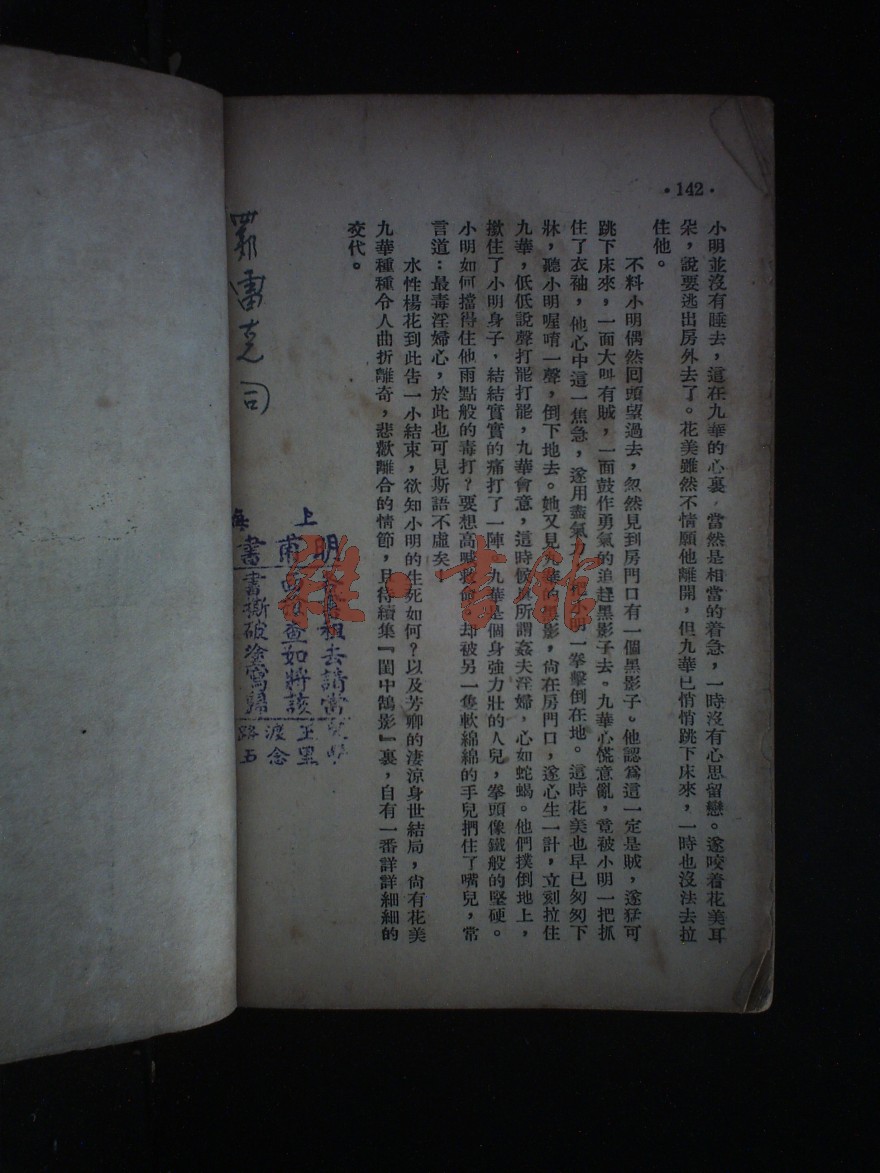 ·142·
小明並沒有睡去，這在九華的心裏，當然是相當的着急，一時沒有心思留戀。遂咬着花美耳
朵，說要逃出房外去了。花美雖然不情願他離開，但九華已悄悄跳下床來，一時也沒法去拉
住他。
不料小明偶然回頭望過去，忽然見到房門口有一個黑影子。他認爲這一定是賊，遂猛可
跳下床來，一面大叫有賊，一面鼓作勇氣的追趕黑影子去。九華心慌意亂，竟被小明一把抓
住了衣袖，他心中這一焦急，遂用盡氣，把小明一拳擊倒在地。這時花美也早已匆匆下
牀，聽小明喔唷一聲，倒下地去。她又見九華的黑影，尚在房門口，遂心生一計，立刻拉住
九華，低低說聲打罷打罷，九華會意，這時候眞所謂姦夫淫婦，心如蛇蝎。他們撲倒地上，
撳住了小明身子，結結實實的痛打了一陣。九華是個身強力壯的人兒，拳頭像鐵般的堅硬。
小明如何擋得住他雨點般的毒打？要想高喊救命，却被另一隻軟綿綿的手兒捫住了嘴兒，常
言道：最毒淫婦心，於此也可見斯語不虛矣。
水性楊花到此告一小結束，欲知小明的生死如何？以及芳卿的淒涼身世結局，尚有花美
九華種種令人曲折離奇，悲歡離合的情節，且待續集『閨中鵠影』裏，自有一番詳詳細細的
交代。
上海
明甫書
租去請當
查如將該
書撕破塗寫
雜·書館